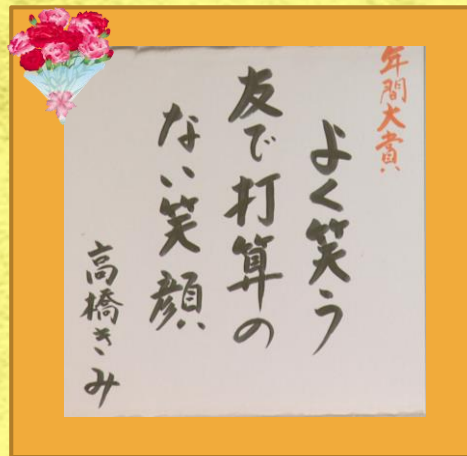 年間大賞
よく笑う
友で打算の
ない笑顔
高橋きみ